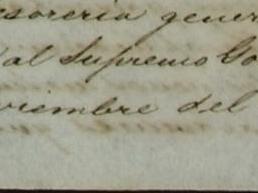 esorería gener
al Supremo Go
viembre del